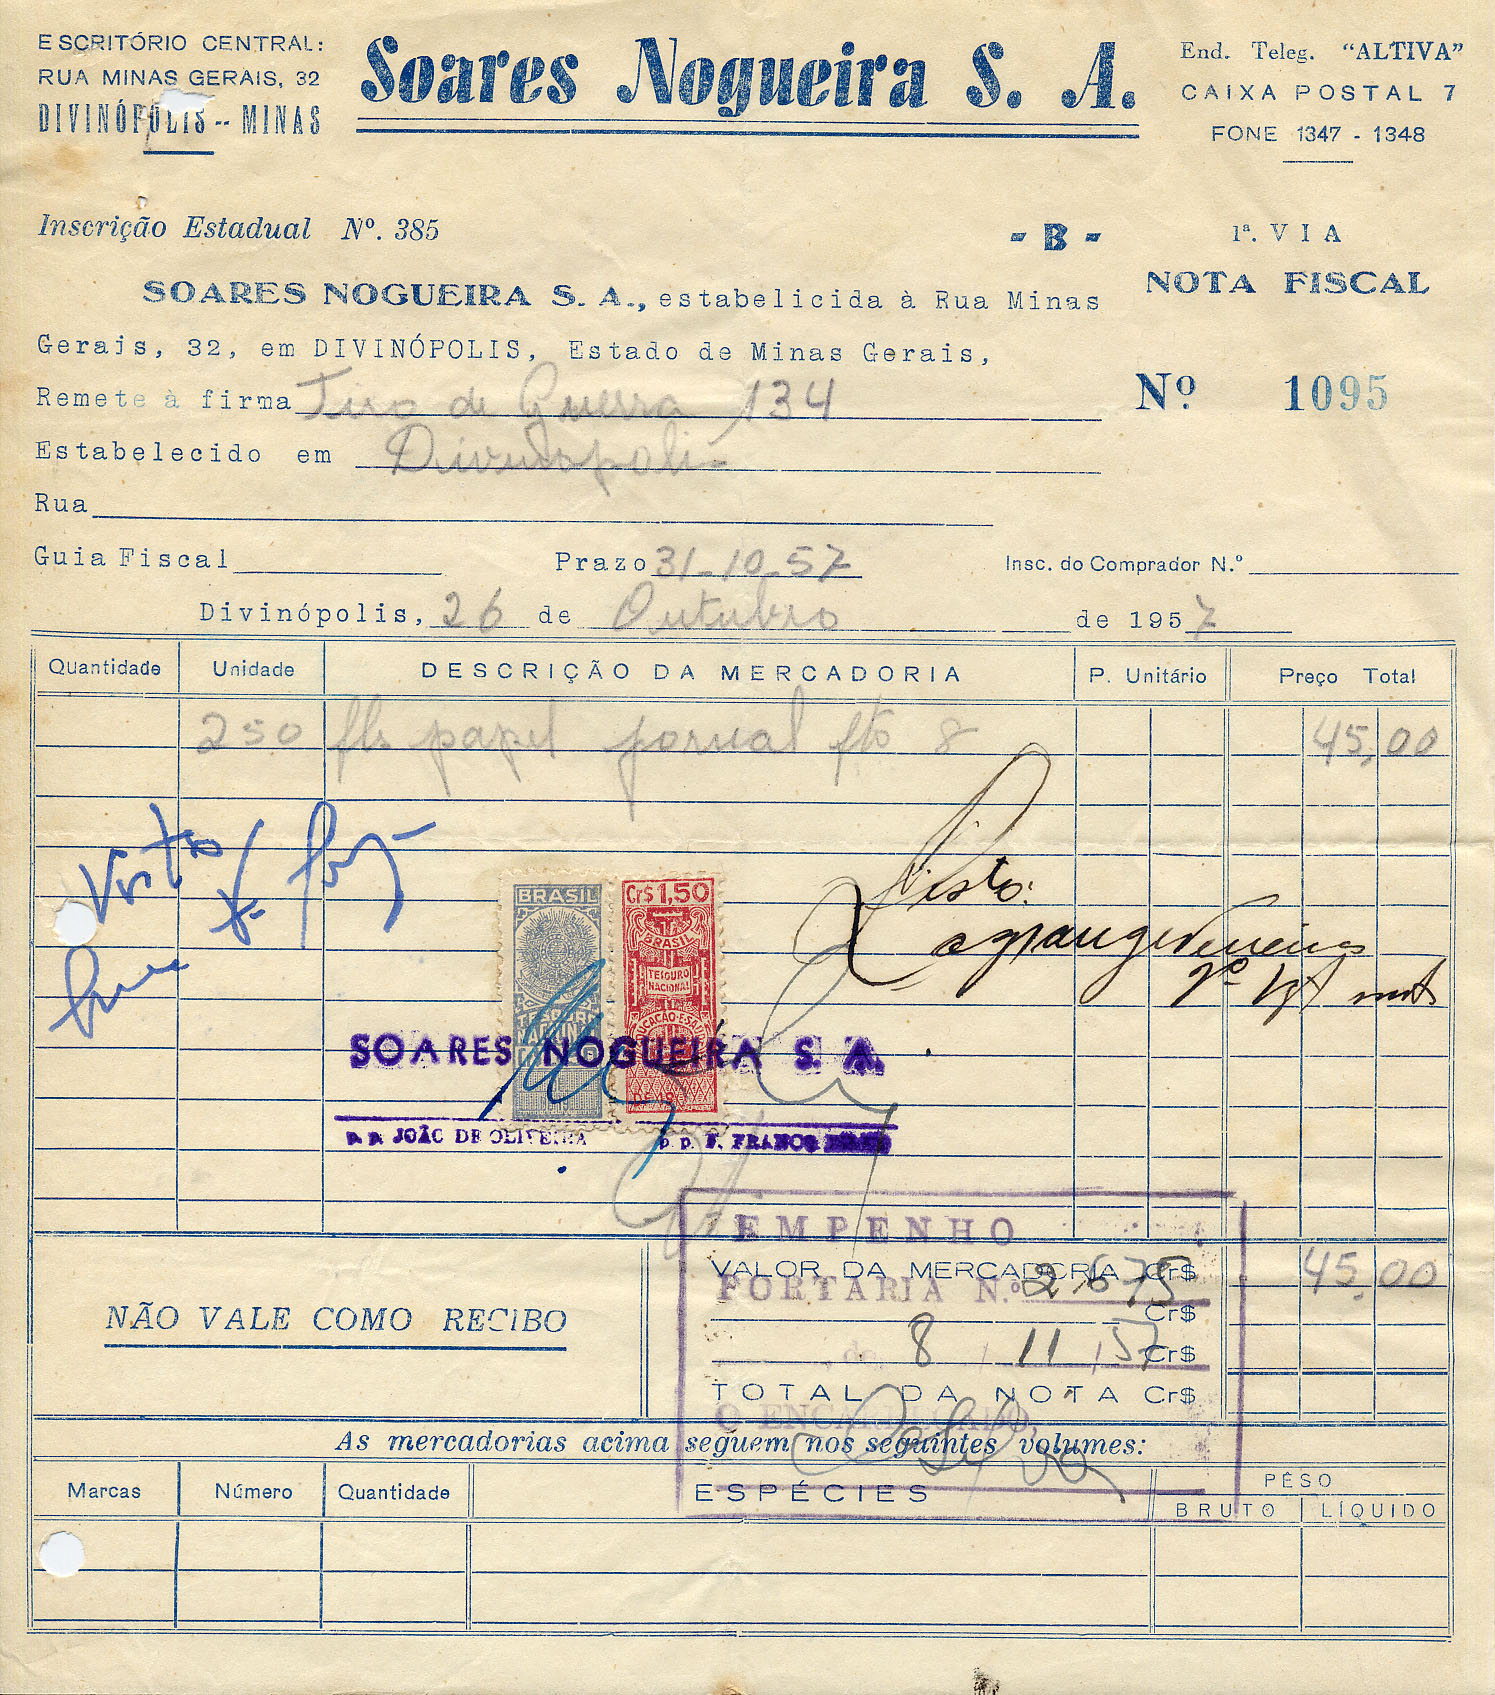 ESCRITÓRIO CENTRAL:
RUA MINAS GERAIS, 32
DIVINÓPOLIS -- MINAS
Soares Nogueira S. A.
End. Teleg. "ALTIVA"
CAIXA POSTAL 7
FONE 1347 - 1348
Inscrição Estadual Nº. 385
- B -
1ª. VIA
NOTA FISCAL
SOARES NOGUEIRA S. A., estabelicida à Rua Minas
Gerais, 32, em DIVINÓPOLIS, Estado de Minas Gerais,
Remete à firma Tiro de Guerra 134
Nº 1095
Estabelecido em Divinopolis
Rua
Guia Fiscal Prazo 31-10-57 Insc. do Comprador N.º
Divinópolis, 26 de Outubro de 1957
Quantidade Unidade DESCRIÇÃO DA MERCADORIA P. Unitário Preço Total
250 fls papel jornal fto 8 45,00
Visto
Visto:
BRASIL
Cr$ 1,50
BRASIL
TESOURO
NACIONAL
EDUCAÇÃO E SAÚDE
TESOURO
NACIONAL
SOARES NOGUEIRA S. A.
p. p. JOÃO DE OLIVEIRA p. p. F. FRANCO
EMPENHO
VALOR DA MERCADORIA Cr$ 45,00
PORTARIA N.º 2.675
Cr$
de 8 / 11 / 57
Cr$
NÃO VALE COMO RECIBO
TOTAL DA NOTA Cr$
O ENCARREGADO,
As mercadorias acima seguem nos seguintes volumes:
Marcas Número Quantidade ESPÉCIES PÊSO
BRUTO LÍQUIDO